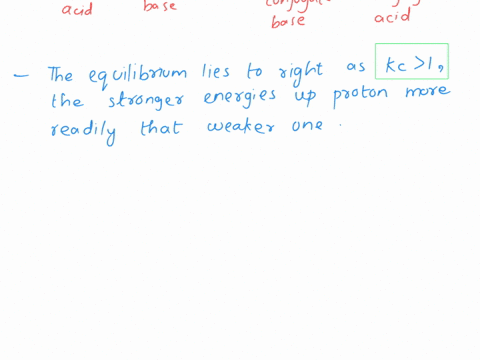 acid base base acid
- The equilibrium lies to right as kc >1,
the stronger energies up proton more
readily that weaker one .